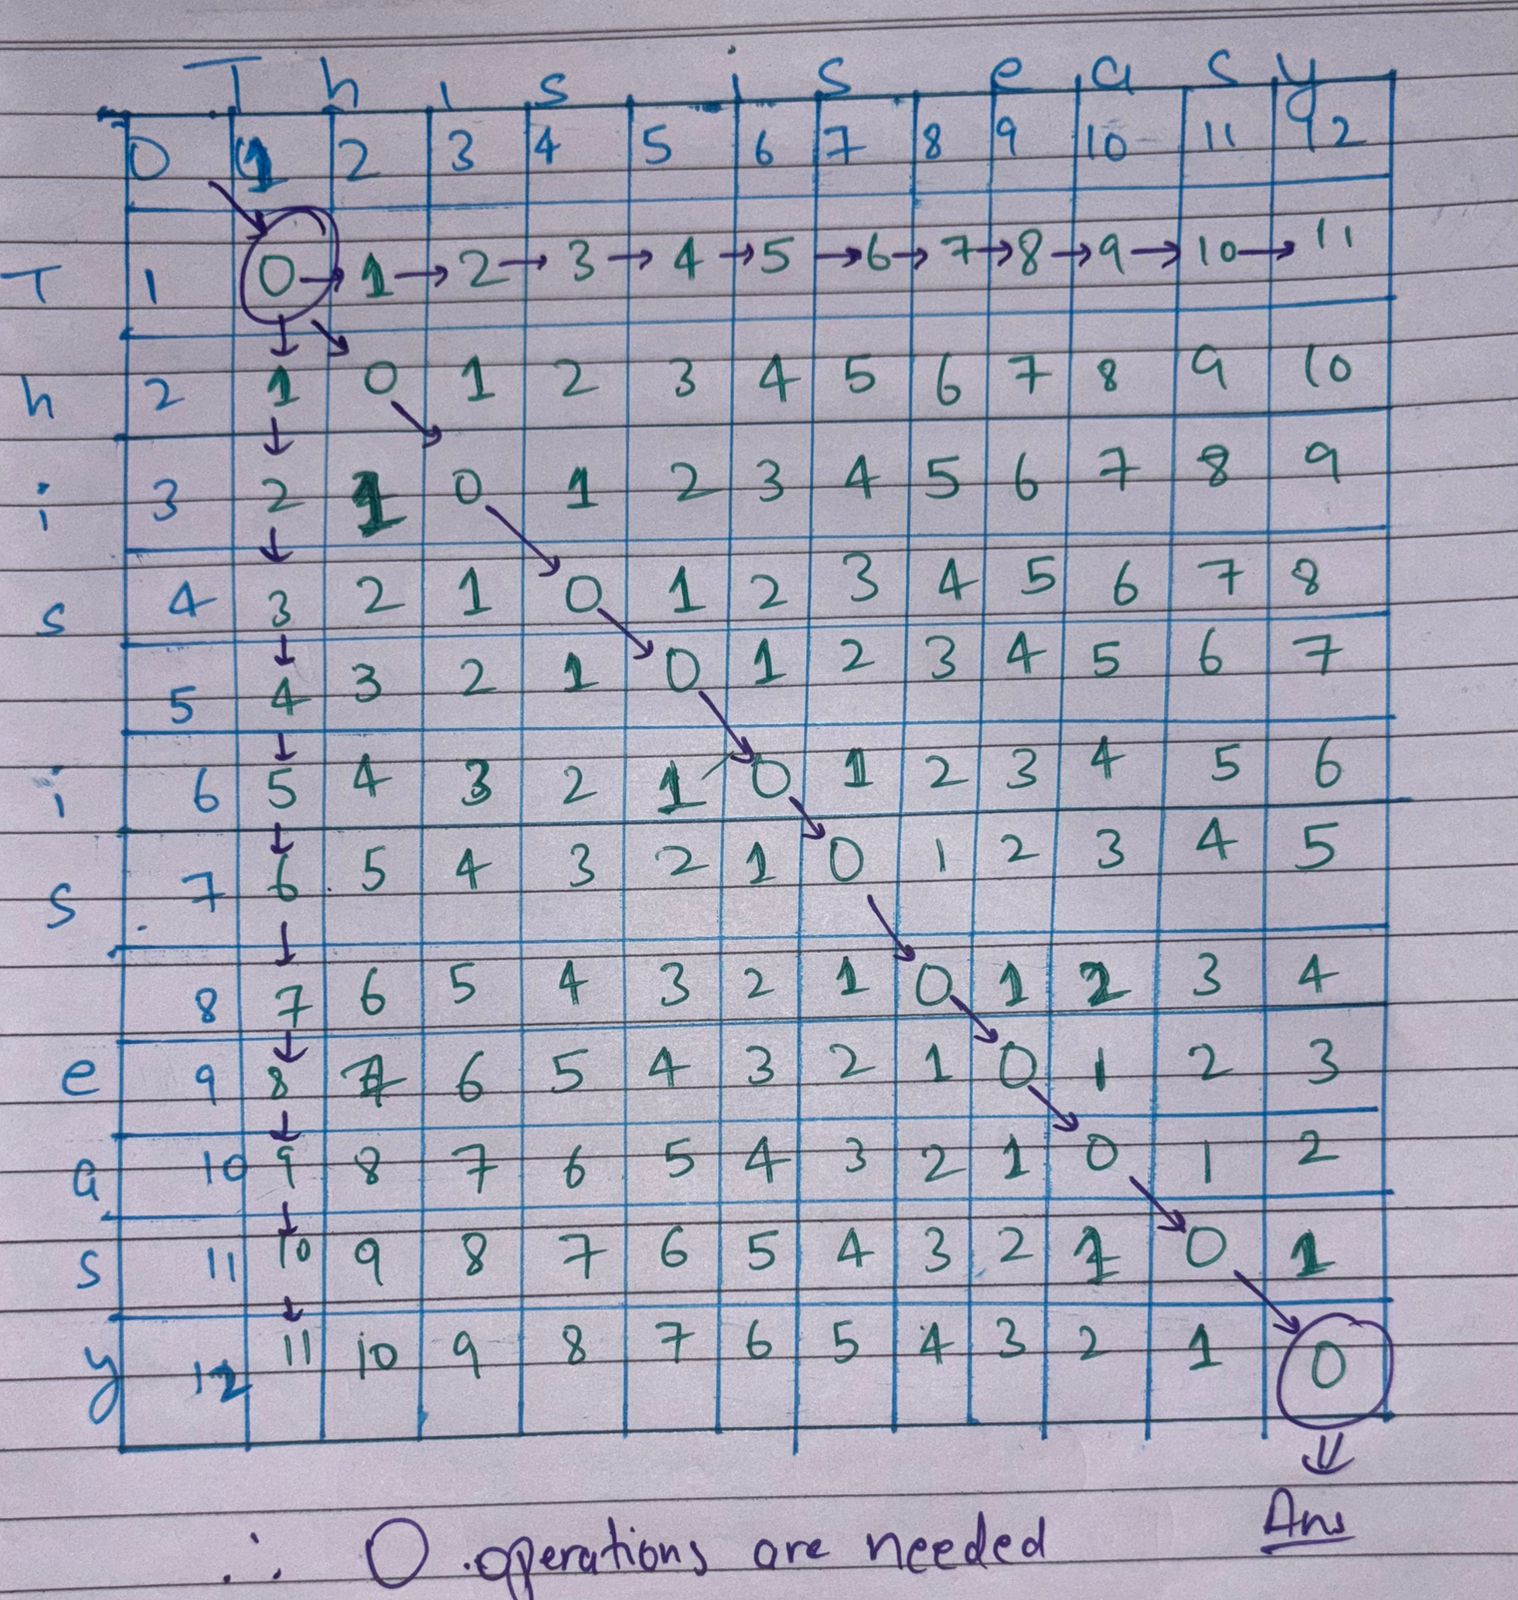 T h i s i s e a s y
0 1 2 3 4 5 6 7 8 9 10 11 12
T 1 0 → 1 → 2 → 3 → 4 → 5 → 6 → 7 → 8 → 9 → 10 → 11
h 2 1 0 1 2 3 4 5 6 7 8 9 10
i 3 2 1 0 1 2 3 4 5 6 7 8 9
s 4 3 2 1 0 1 2 3 4 5 6 7 8
5 4 3 2 1 0 1 2 3 4 5 6 7
i 6 5 4 3 2 1 0 1 2 3 4 5 6
s 7 6 5 4 3 2 1 0 1 2 3 4 5
8 7 6 5 4 3 2 1 0 1 2 3 4
e 9 8 7 6 5 4 3 2 1 0 1 2 3
a 10 9 8 7 6 5 4 3 2 1 0 1 2
s 11 10 9 8 7 6 5 4 3 2 1 0 1
y 12 11 10 9 8 7 6 5 4 3 2 1 0
⇓
Ans
∴ 0 operations are needed